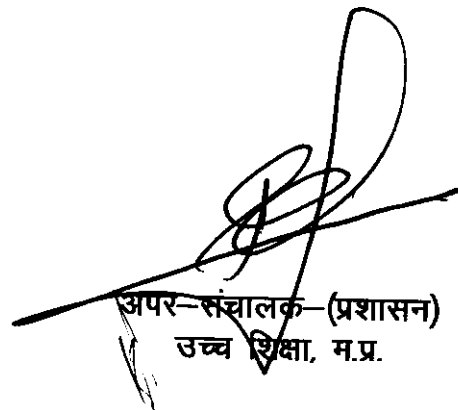 अपर–संचालक–(प्रशासन)
उच्च शिक्षा, म.प्र.